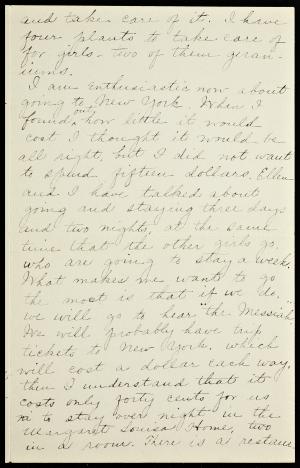 and take care of it. I have
four plants to take care of
for girls - two of them geran-
iums.
I am enthusiastic now about
going to New York. When I
found out how little it would
cost I thought it would be
all right, but I did not want
to spend fifteen dollars. Ellen
and I have talked about
going and staying three days
and two nights, at the same
time that the other girls go,
who are going to stay a week.
What makes me want to go
the most is that if we do,
we will go to hear "the Messiah".
We will probably have trip
tickets to New York, which
will cost a dollar each way,
then I understand that it
costs only forty cents for us
to stay over night in the
Margaret Louisa Home, two
in a room. There is a restau